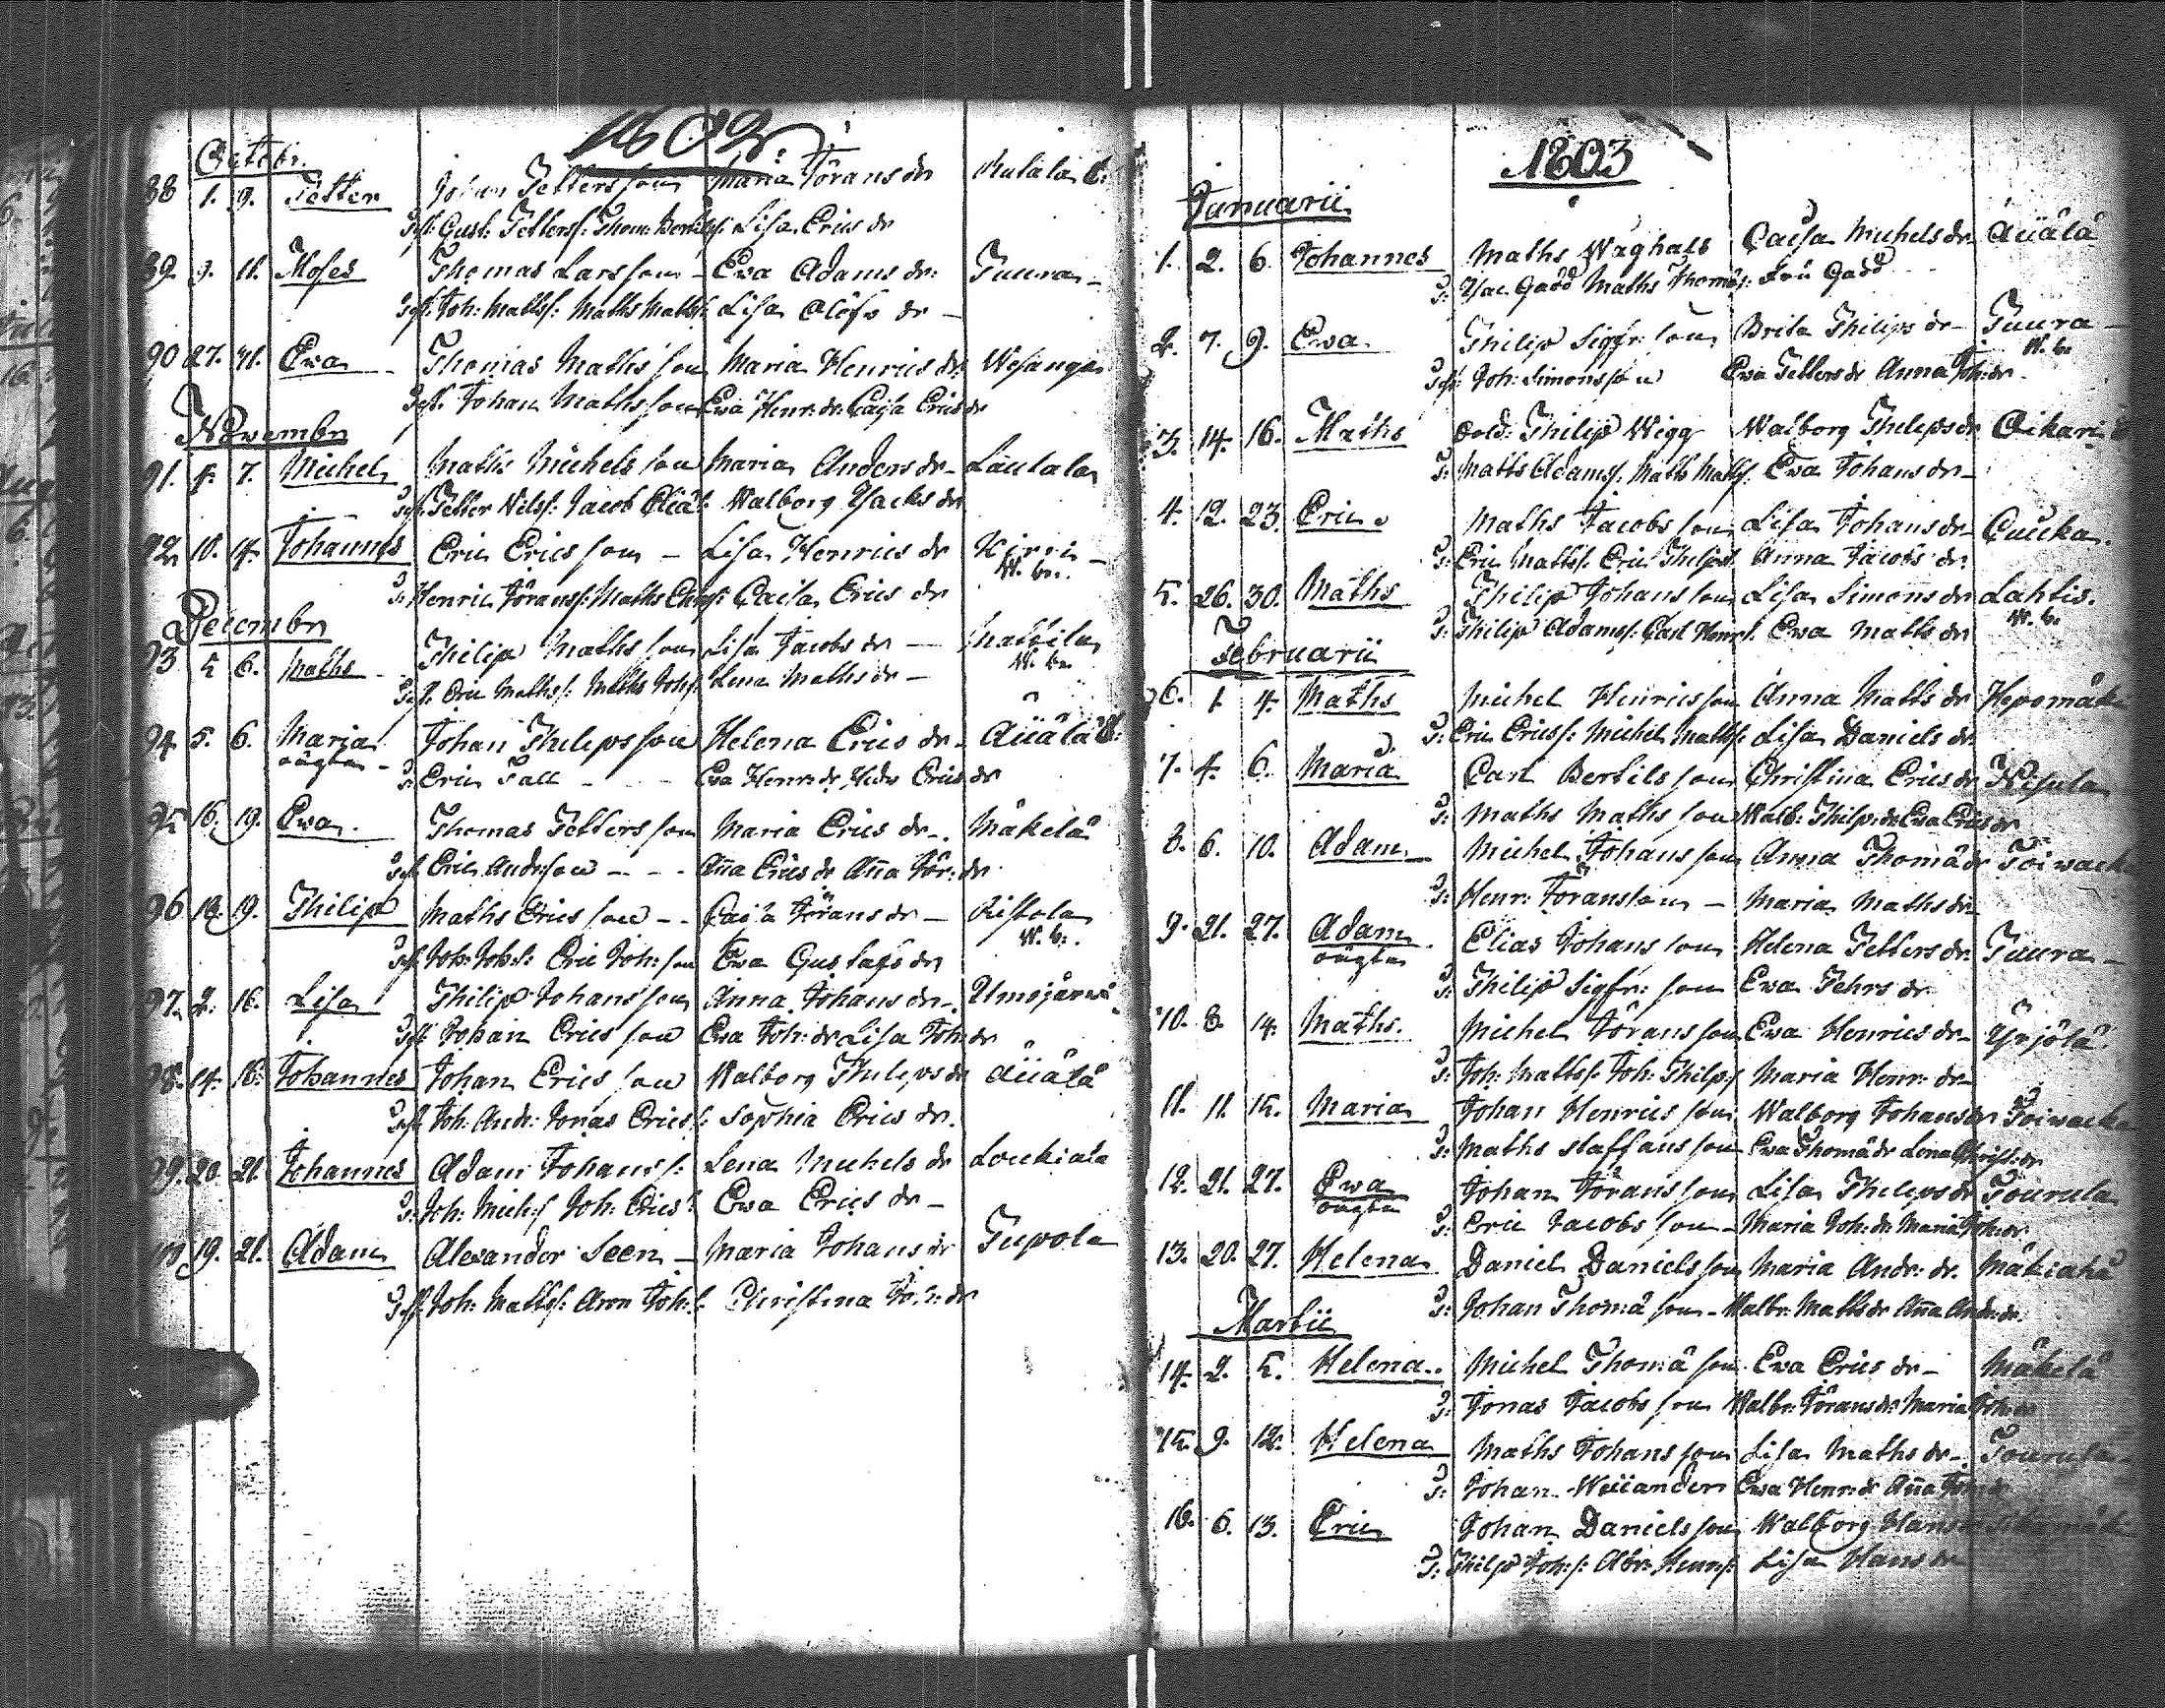 1802.
Octobr.
88 1. 9. Petter Johan Pettersson Maria Jörans dr
Gust: Petterss: Lisa Erics dr
89. 9. 11. Moses Thomas Larsson Ewa Adams dr: Tuura
Joh: Mattss: Maths Mattss: Lisa Olofs dr
90 27. 31. Ewa Thomas Mathsson Maria Henrics dr
Johan Mathsson Ewa Henr: dr Cajsa Erics dr
Novembr
91. 4. 7. Michel Maths Michelsson Maria Anders dr Lautala
Petter Nilss: Jacob Walborg Isacks dr
92 10. 14. Johannes Eric Ericsson Lisa Henrics dr
W. b.
Henric Jöranss: Maths Caisa Erics dr
Decembr
93 5 6. Maths Philip Mathsson Lisa Jacobs dr Mattila
W. b.
Eric Mathss: Maths Johss: Lena Maths dr
94 5. 6. Maria Johan Philipsson Helena Erics dr Äüälä
oägta
Eric Fall Ewa Henr: dr Erics dr
95 16. 19. Ewa. Thomas Pettersson Maria Erics dr Mäkelä
Eric Andersson Aña Erics dr Aña Jör: dr
96 18. 19. Philip Maths Ericsson Cajsa Jörans dr Ristola
W. b.
Joh: Johs: Eric Joh: son Ewa Gustafs dr
97. 2. 16. Lisa Philip Johansson Anna Johans dr
Johan Ericsson Ewa Joh: dr Lisa Joh: dr
98. 14. 16. Johannes Johan Ericsson Walborg Philips dr Äüälä
Joh: And: Jonas Ericss: Sophia Erics dr.
99. 20. 21. Johannes Adam Johanss: Lena Michels dr Loukiala
Joh: Mich: Joh: Erics: Ewa Erics dr
100 19. 21. Adam Alexander Seen Maria Johans dr Tupola
Joh: Mattss: Aron Joh: Christina Joh: dr
1803
Januarii
1. 2. 6. Johannes Maths Waghals Caisa Michels dr Äüälä
Isac Gadd Maths Thomäs: Fru Gadd
2. 7. 9. Ewa Philip Sigfr: son Brita Philips dr Tuura
W. b.
Joh: Simonsson Ewa Petters dr Anna Joh: dr
3. 14. 16. Maths Sold: Philip Wigg Walborg Philips dr
Maths Adamss: Maths Mathss: Ewa Johans dr
4. 12. 23. Eric Maths Jacobsson Lisa Johans dr
Eric Mattss: Eric Philips: Anna Jacobs dr
5. 26. 30. Maths Philip Johansson Lisa Simons dr Lahtis.
W. b.
Philip Adamss: Carl Henrs: Ewa Matts dr
Februarii
6. 1. 4. Maths Michel Henricsson Anna Matts dr
Eric Ericss: Michel Mattss: Lisa Daniels dr
7. 4. 6. Maria Carl Bertilsson Christina Erics dr Nisula
Maths Mathsson Walb: Philips: dr Ewa Erics dr
8. 6. 10. Adam Michel Johansson Anna Thomä dr
Henr: Jöransson Maria Maths dr
9. 21. 27. Adam Elias Johansson Helena Petters dr Tuura
oägta
Philip Sigfr: son Ewa Pehrs dr
10. 8. 14. Maths. Michel Jöransson Ewa Henrics dr Yrjölä
Joh: Mattss: Joh: Philips: Maria Henr: dr
11. 11. 15. Maria Johan Henricsson Walborg Johans dr
Maths Staffansson Ewa Thomä dr Lena Christ: dr
12. 21. 27. Ewa Johan Jöransson Lisa Philips dr Tourula
oägta
Eric Jacobsson Maria Joh: dr Maria Joh: dr
13. 20. 27. Helena Daniel Danielsson Maria Andr: dr.
Johan Thomä son Walbr: Maths dr Aña Andr: dr.
Martii
14. 2. 5. Helena Michel Thomä son Ewa Erics dr Mäkelä
Jonas Jacobsson Walbr: Jörans dr Maria Joh: dr
15. 9. 12. Helena Maths Johansson Lisa Maths dr Tourula
Johan Ewa Henr: dr Aña Joh: dr
16. 6. 13. Eric Johan Danielsson Walborg Hans
Philip Joh: s: Abr: Henrs: Lisa Hans dr